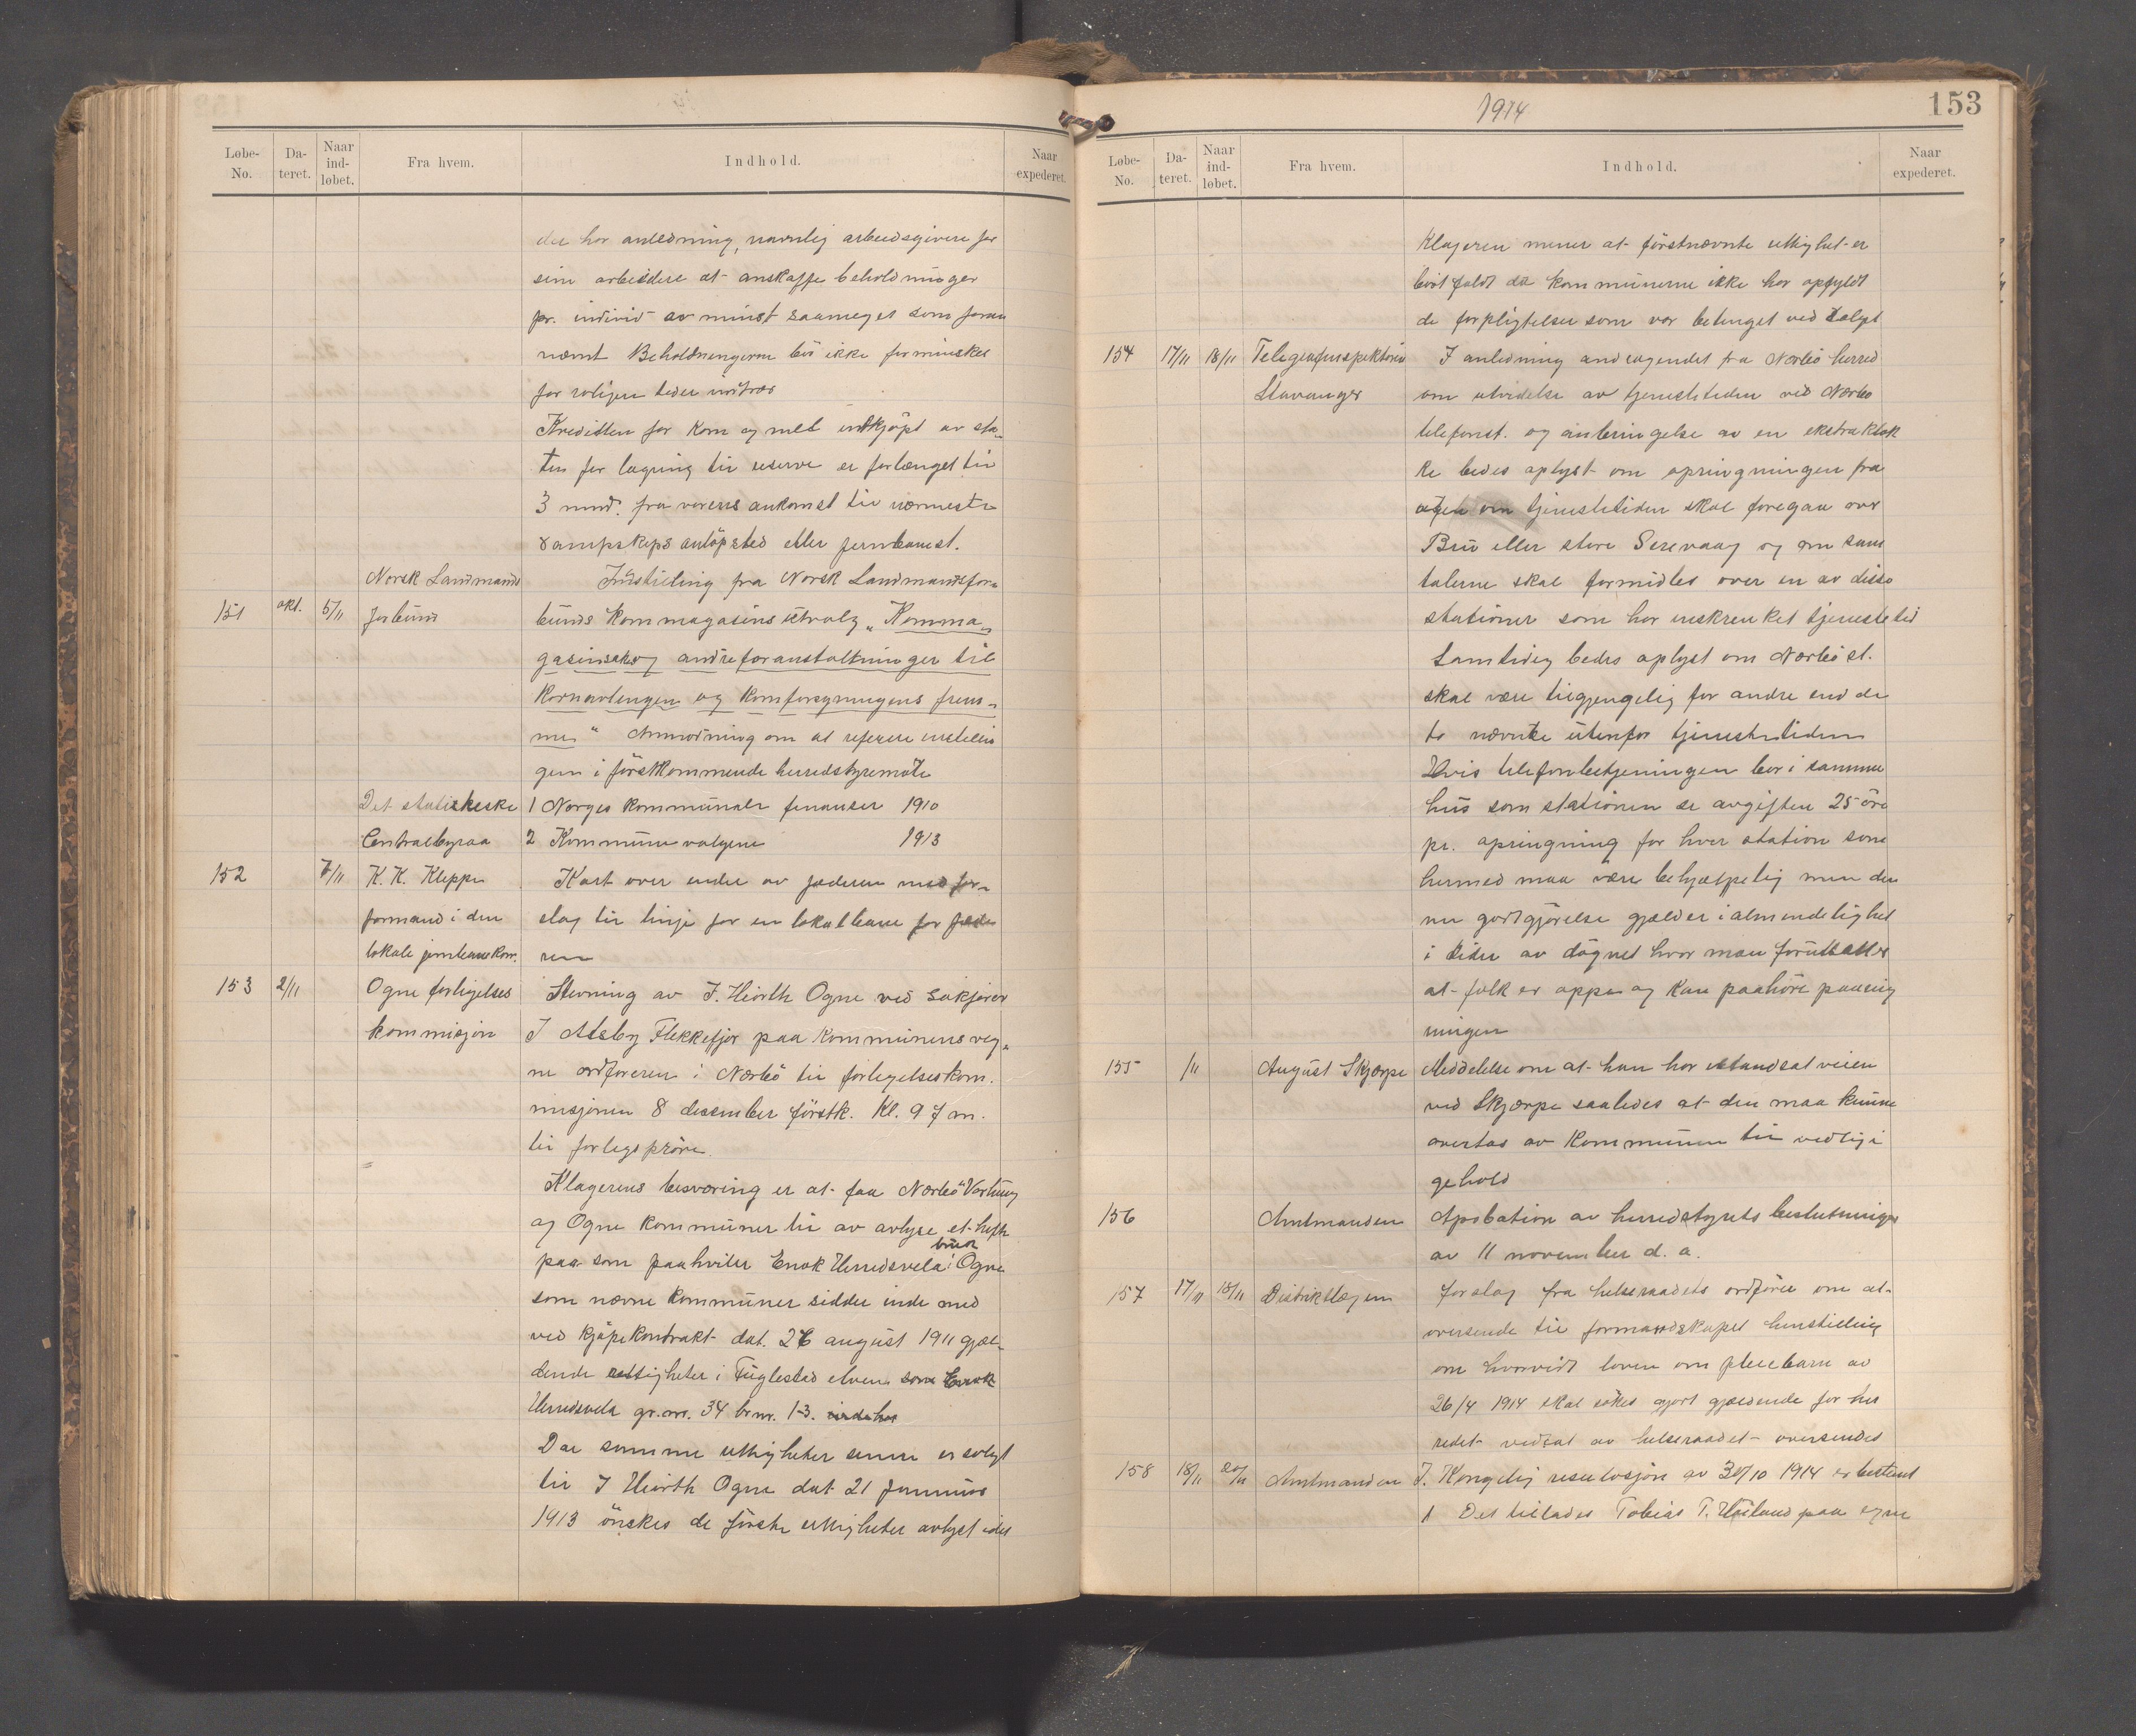 Løbe-No. Da-teret. Naar ind-løbet. Fra hvem. Indhold. Naar expederet.
der har anledning, navnlig arbeidsgivere for
sine arbeidere at anskaffe beholdninger
pr. individ av minst saameget som foran
nævnt Beholdningerne bør ikke forminskes
før roligere tider indtrær
Kreditten for korn og mel indkjöpt av sta-
ten for lagring til reserve er forlænget til
3 mnd. fra varens ankomst til nærmeste
dampskips anlöpsted eller jernbanest.
Norsk Landmands Indstilling fra Norsk Landmandsfor-
151 okt. 5/11 forbund bunds kornmagasins utvalg „Kornma-
gasinsak og andre foranstaltninger til
kornavlingen og kornforsyningens frem-
me" Anmodning om at referere instillin
gen i förstkommende herredstyremöte
Det statistiske 1 Norges kommunale finanser 1910
Centralbyraa 2 Kommunevalgene 1913
152 7/11 K. K. Kleppe Kart over endel av Jæderen med for-
formand i den slag til linje for en lokalbane for Jæde
lokale jernbanekom. ren
153 2/11 Ogne forligelses Stevning av J. Hiorth Ogne ved sakförer
kommisjon J Alsby Flekkefjor paa kommunens veg-
ne ordföreren i Nærbö til forligelseskom.
misjonen 8 desember förstk. Kl. 9 f m.
til forlegspröve.
Klagerens besværing er at faa Nærbö Varhaug
og Ogne kommuner til av avlyse et hefte
paa som paahviler Enok Herredsvela bruk i Ogne
som nævne kommuner sidder inde med
ved kjöpekontrakt dat. 26 august 1911 gjæl-
dende rettigheter i Fuglestad elven som Enok
Herredsvela gr.nr. 34 br.nr. 13. indehar
Da samme rettigheter senere er solgt
til J Hiorth Ogne dat 21 Januar
1913 önskes de förste rettigheter avlyst idet
1914
153
Løbe-No. Da-teret. Naar ind-løbet. Fra hvem. Indhold. Naar expederet.
Klageren mener at förstnævnte rettighet er
bortfaldt da kommunerne ikke har opfyldt
de forpligtelser som var betinget ved salget
154 17/11 18/11 Telegrafinspektören I anledning andragendet fra Nærbö herred
Stavanger om utvidelse av tjenestetiden ved Nærbö
telefonst. og anbringelse av en ekstraklok
ke bedes oplyst om opringningen fra
utenom tjenestetiden skal foregaa over
Bru eller store Sirevaag og om sam
talerne skal formidles over en av disse
stationer som har inskrenket tjenestetid
Samtidig bedes oplyst om Nærbö st.
skal være tilgjengelig for andre end de
to nævnte utenfor tjenestetiden
Hvis telefonbetjeningen bor i samme
hus som stationen er avgiften 25 öre
pr. opringning for hver station som
hermed maa være behjælpelig men den
ne godtgjörelse gjælder i almindelighet
i tider av dögnet hvor man forutsætter
at folk er oppe og kan paahöre paaring
ningen
155 /11 August Skjærpe Meddelelse om at han har istandsat veien
ved Skjærpe saaledes at den maa kunne
overtas av kommunen til vedlige
gehold
156 Amtmanden Aprobation av herredstyrets beslutninger
av 11 november d. a.
157 17/11 18/11 Distriktlægen forslag fra helseraadets ordförer om at
oversende til formandskapet henstilling
om hvorvidt loven om pleiebarn av
26/4 1914 skal sökes gjort gjældende for her
redet vedtat av helseraadet oversendes
158 18/11 20/11 Amtmanden I. Kongelig resulosjon av 30/10 1914 er bestemt
1 Det tillades Tobias T. Höiland paa egne